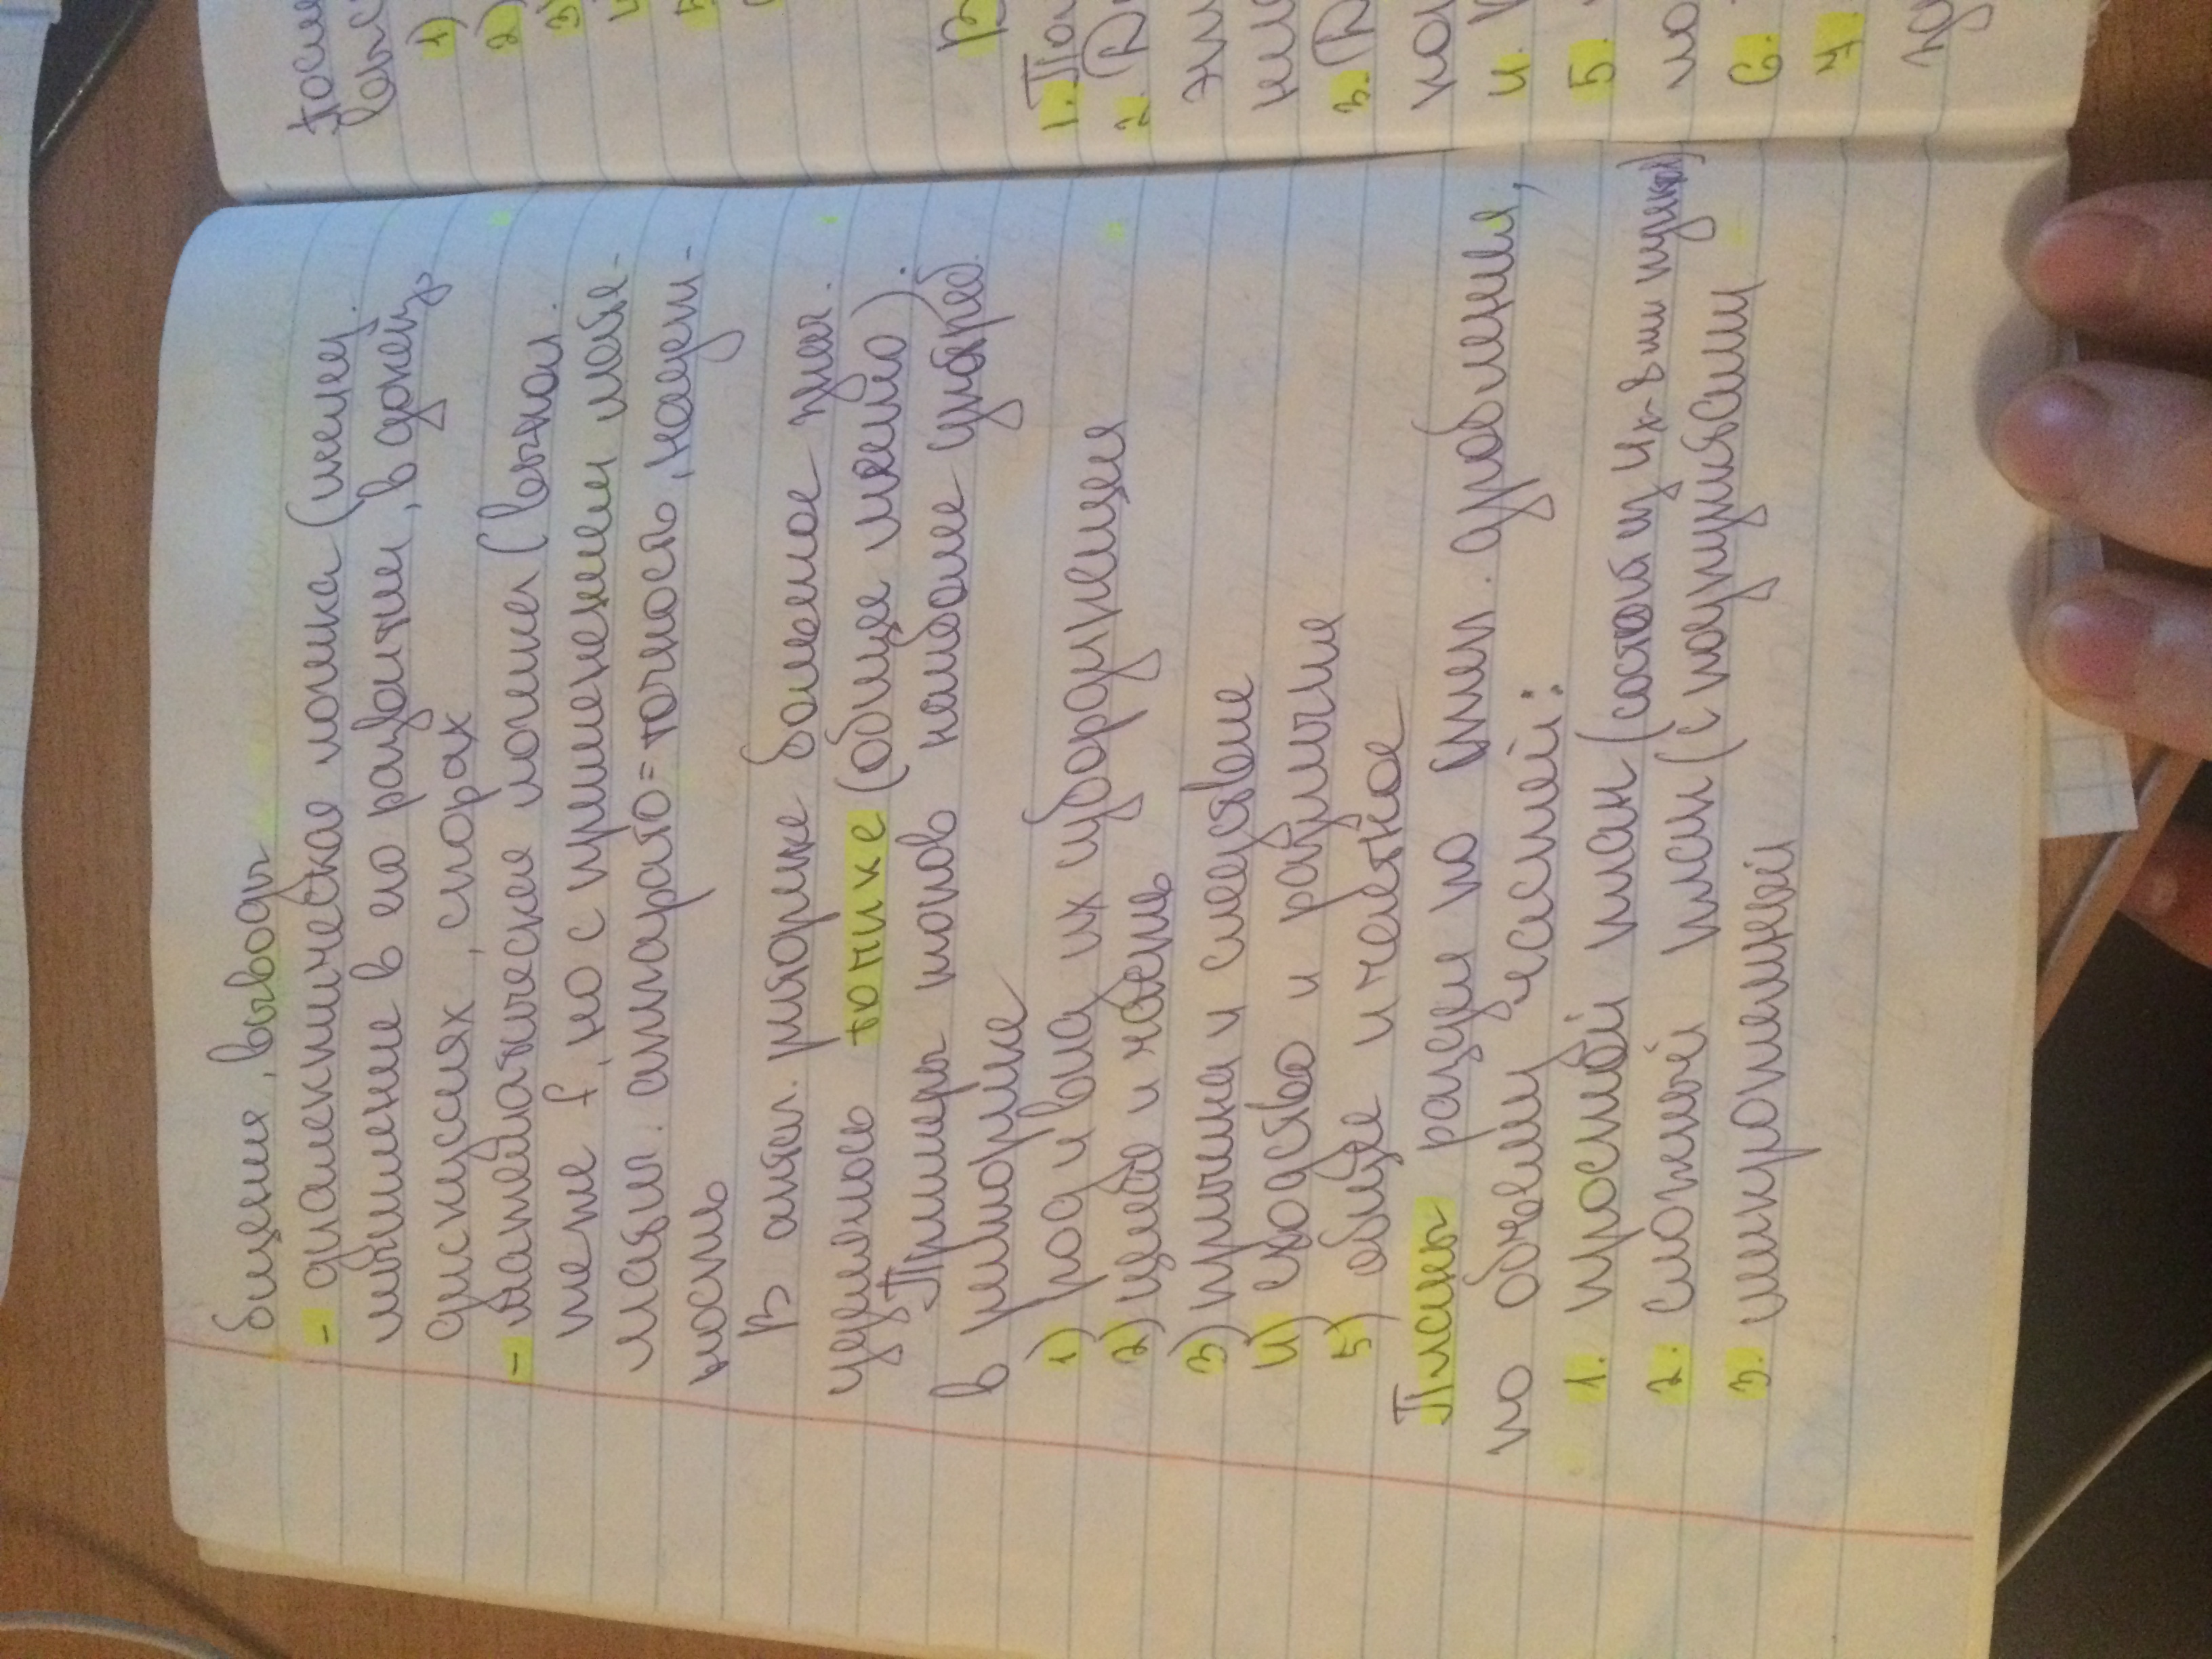 бщения, выводы
- диалектическая логика (
мышление в его развитии, в
дискуссиях, спорах
- математическая логика (выпол.
те же f, но с применением мате-
матич. аппарато = точность, надеж-
ность
В антич. риторике большое знач.
уделялось топике (общее место).
Примеры топов наиболее употреб.
в риторике
1) род и вид их субординация
2) целое и часть
3) причина и следствие
4) сходство и различия
5) общее и частное
Планы раздел по степ. дробления,
по объему частей:
1. простой план (состоит из 4х-8ми пунктов)
2. сложный план (с подпунктами
3. микротемный
После
1)
2)
3)
4
5
В
1.
2.
3.
4.
5.
6.
7.